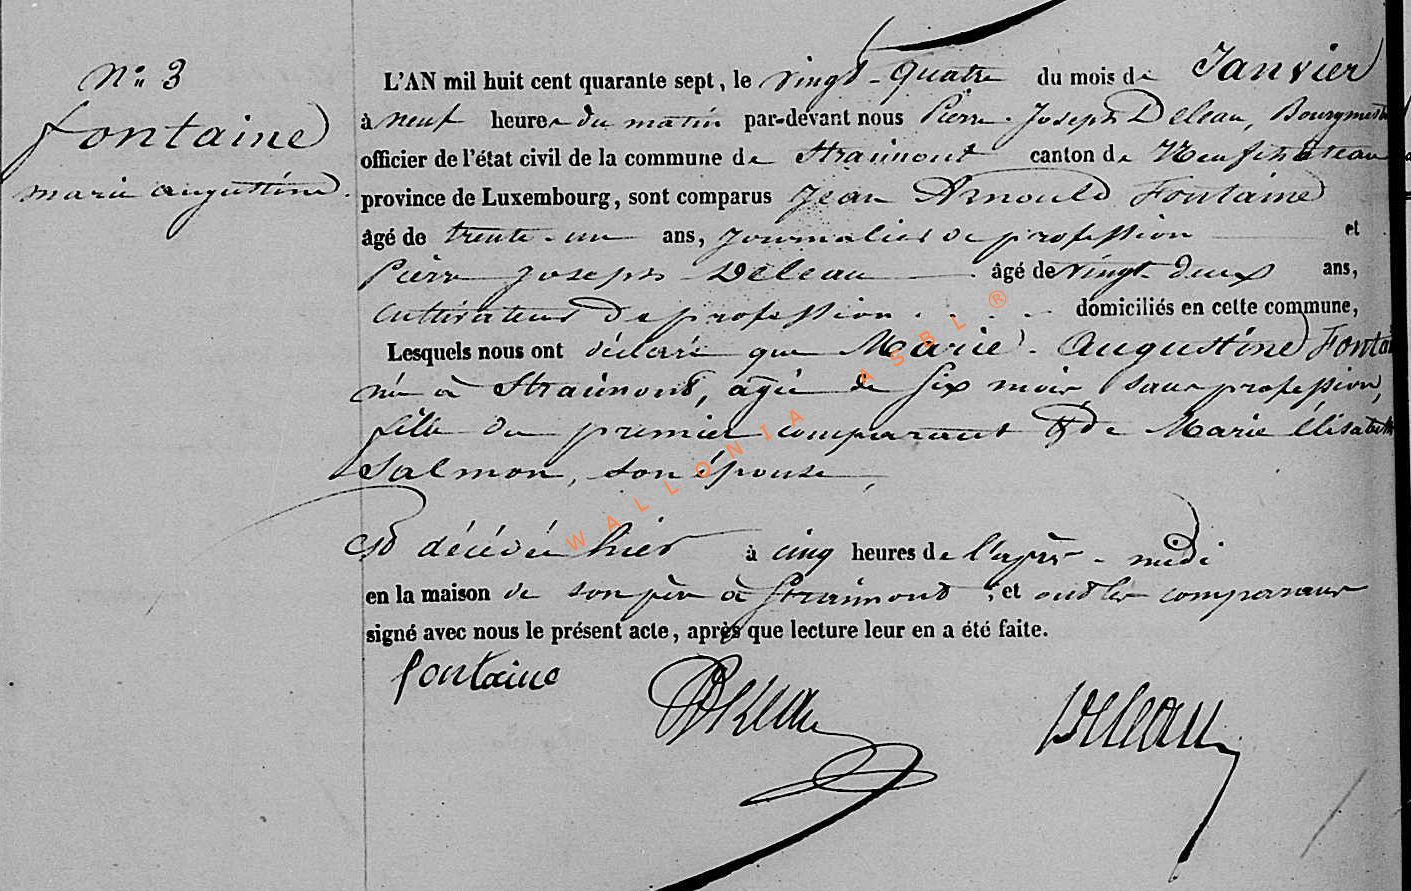 N° 3
fontaine
marie augustine.
L'AN mil huit cent quarante sept, le vingt-quatre du mois de Janvier
à neuf heures du matin par-devant nous Pierre-Joseph Deleau, Bourgmestre
officier de l'état civil de la commune de Straimont canton de Neufchateau
province de Luxembourg, sont comparus Jean Arnould Fontaine
âgé de trente-un ans, Journalier de profession et
Pierre Joseph Deleau âgé de vingt deux ans,
cultivateur de profession domiciliés en cette commune,
Lesquels nous ont déclaré que Marie-Augustine Fontai
née à Straimont, agée de six mois, sans profession,
fille du premier comparant & de Marie élisabeth
Salmon, son épouse,
est décédée hier à cinq heures de l'après-midi
en la maison de son père à Straimont, et ont les comparans
signé avec nous le présent acte, après que lecture leur en a été faite.
fontaine Deleau Deleau
WALLONIA ASBL ®